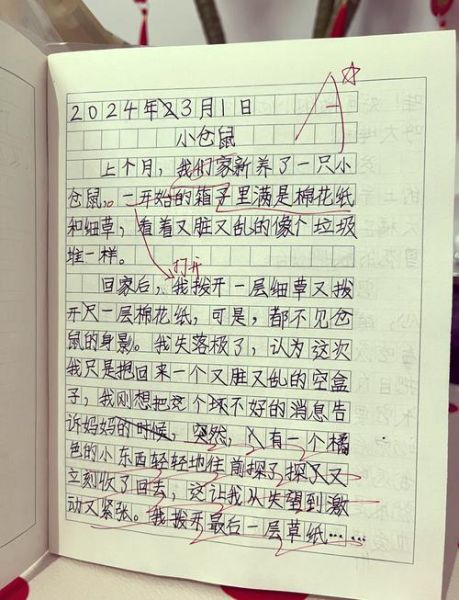 2024年3月1日
小仓鼠
上个月，我们家新养了一只小
仓鼠，一开始的箱子里满是棉花纸
和细草，看着又脏又乱的像个垃圾
堆一样。
打开
回家后，我拨开一层细草又拨
开一层棉花纸，可是，都不见仓
鼠的身影。我失落极了，认为这次
我只是抱回来一个又脏又乱的空盒
子，我刚想把这个不好的消息告
诉妈妈的时候，突然，有一个橘
色的小东西轻轻地往前探了探又
立刻收了回去，这让我从失望到激
动又紧张。我拨开最后一层草纸……